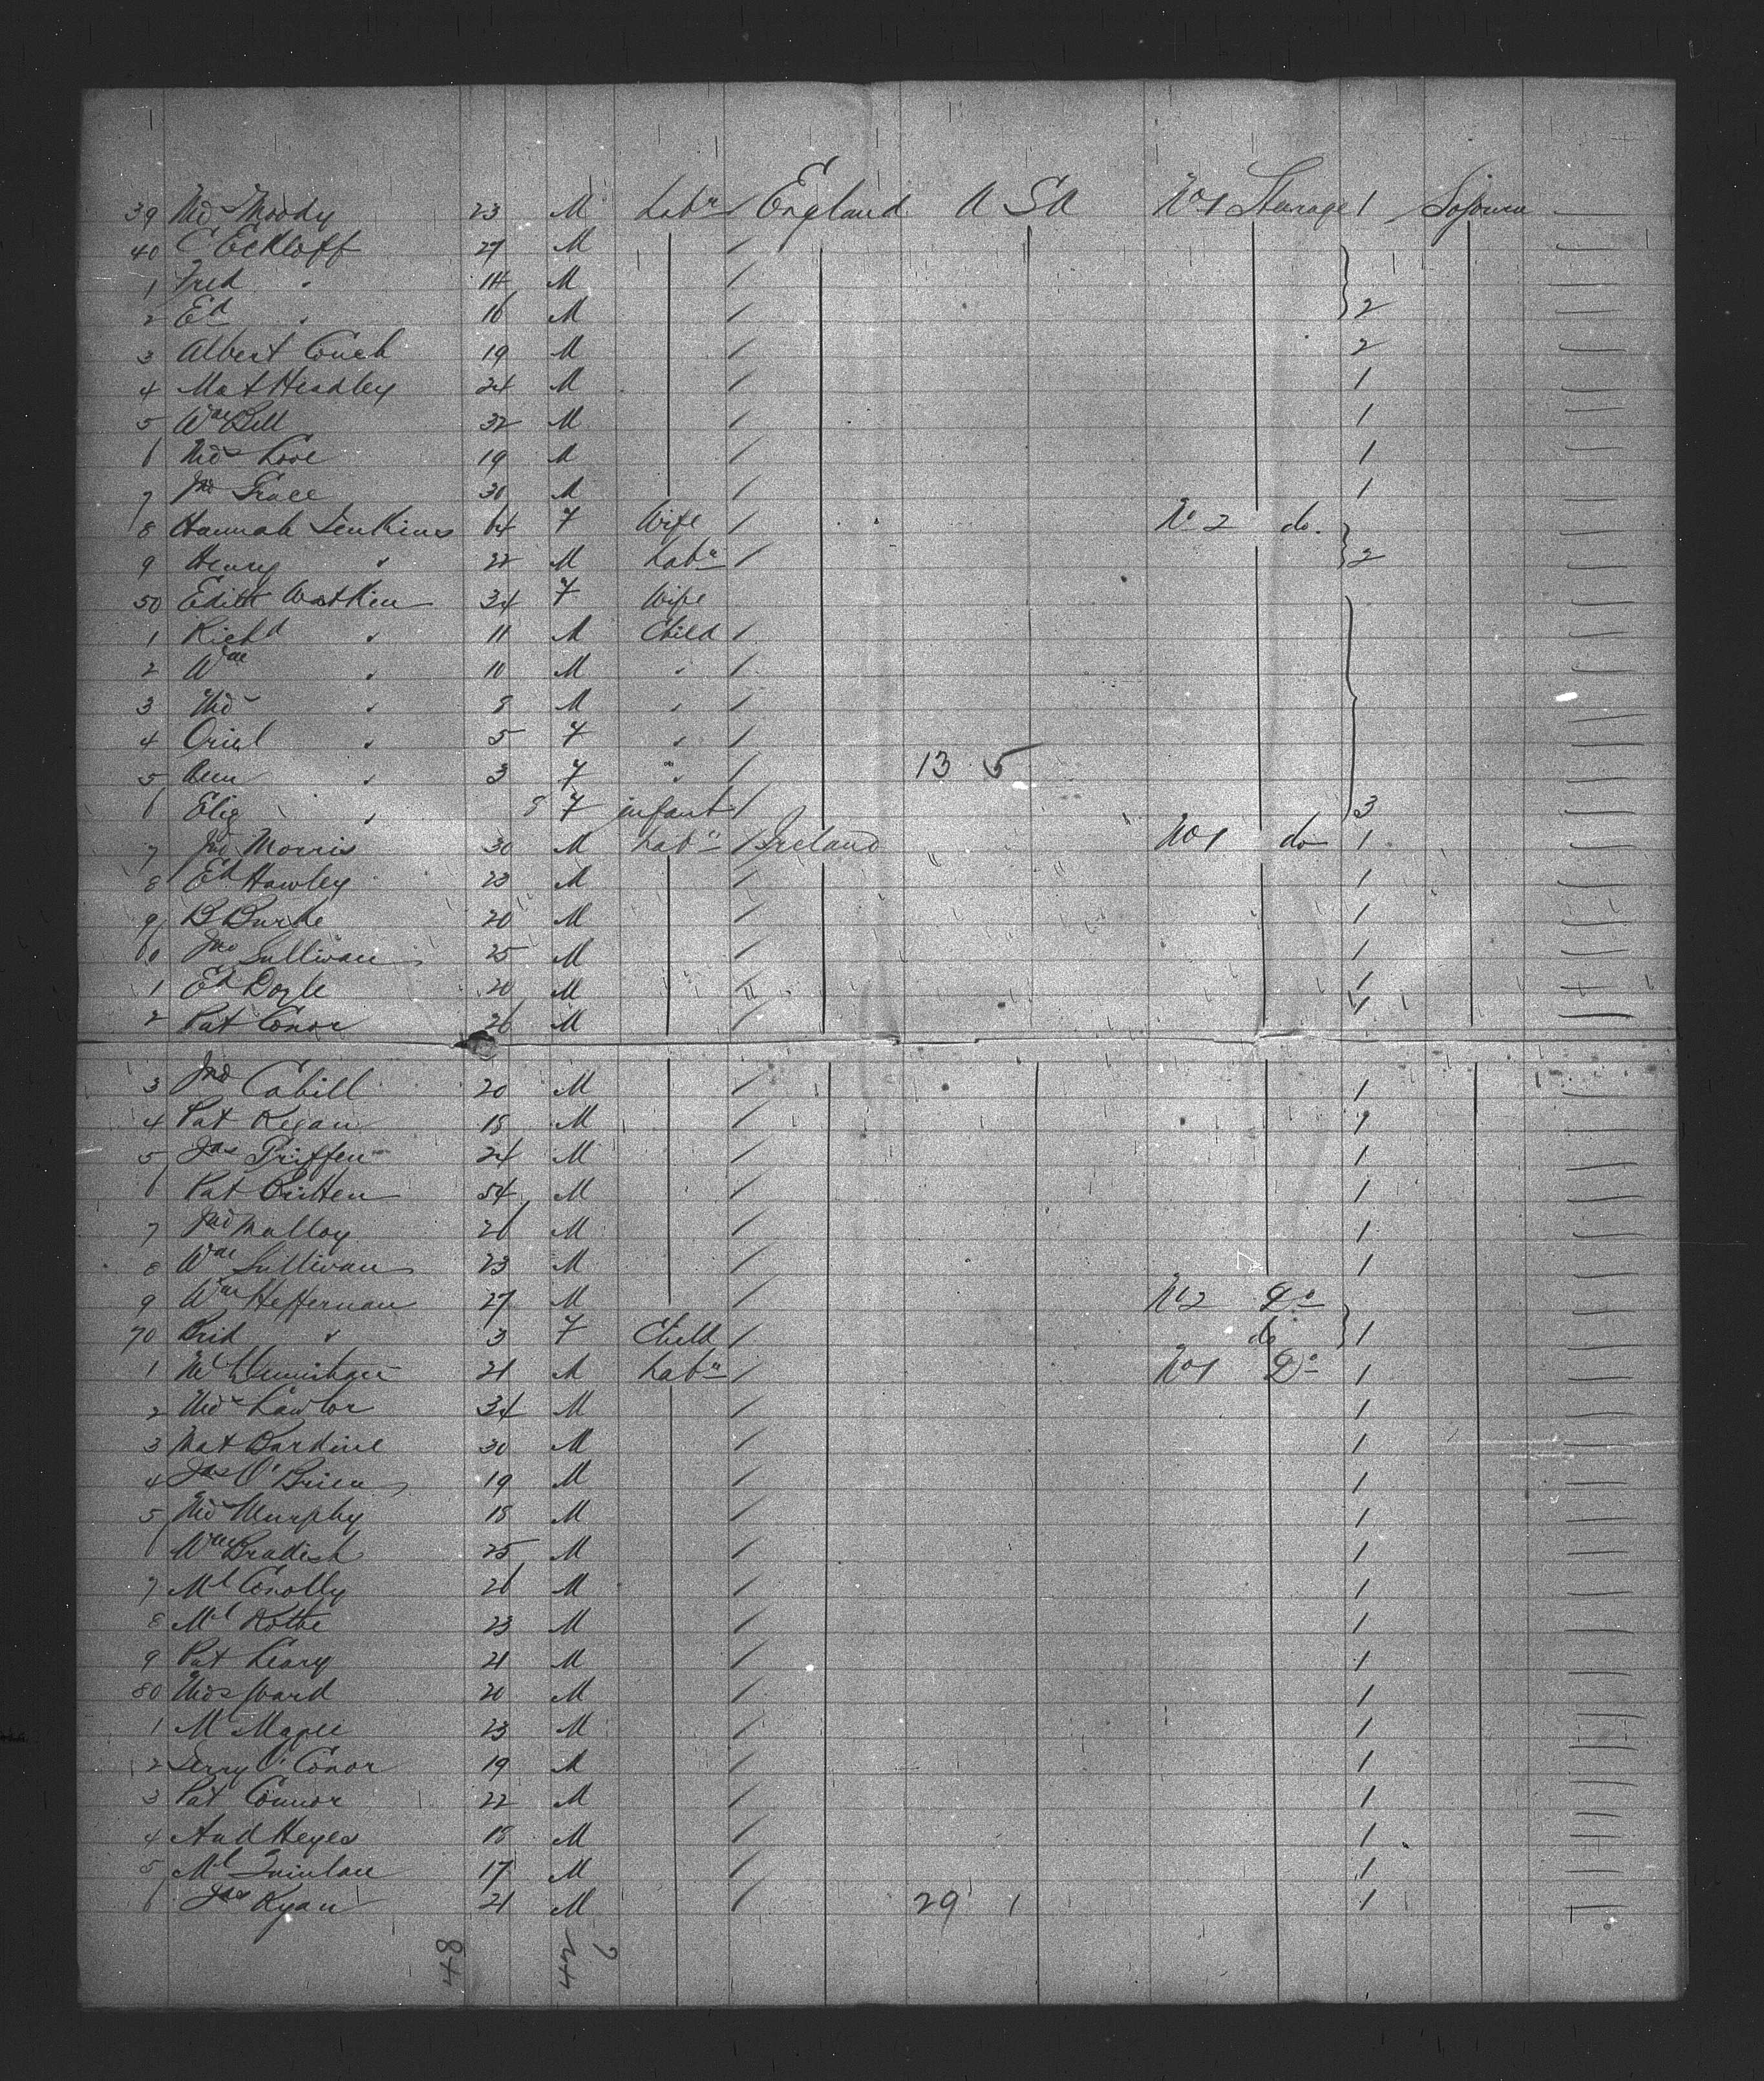 39 Thos Moody 23 M Labr / England U S A No 1 Steerage 1 Sojourn —
40 C Eckloff 27 M /
1 Fred " 14 M /
2 Ed " 16 M / 2
3 Albert Couch 19 M / 2
4 Mat Headley 24 M / 1
5 Wm Bell 32 M / 1
6 Thos Love 19 M / 1
7 Jno Grace 30 M / 1
8 Hannah Jenkins 64 F Wife / No 2 do.
9 Henry " 22 M Labr / 2
50 Edith Watkin 34 F Wife
1 Richd " 11 M Child /
2 Wm " 10 M " /
3 Thos " 8 M " /
4 Oriel " 5 F " /
5 Ann " 3 F " / 13 5
6 Eliz " 8 F infant / 3
7 Jno Morris 30 M Labr / Ireland No 1 do 1
8 Ed Hawley 23 M / 1
9 B Burke 20 M / 1
60 Jno Sullivan 25 M / 1
1 Ed Doyle 20 M / 1
2 Pat Conor 26 M / 1
3 Jno Cahill 20 M / 1
4 Pat Regan 18 M / 1
5 Jas Griffen 24 M / 1
6 Pat 54 M / 1
7 Jno Malloy 26 M / 1
8 Wm Sullivan 23 M / 1
9 Wm Heffernan 27 M / No 2 Do
70 Brid " 3 F Child / do 1
1 21 M Labr / No 1 Do 1
2 Thos Lawlor 34 M / 1
3 Mat 30 M / 1
4 Jas O'Brien 19 M / 1
5 Thos Murphy 18 M / 1
6 Wm Bradish 25 M / 1
7 Ml Conolly 26 M / 1
8 Ml Rothe 23 M / 1
9 Pat Leary 21 M / 1
80 Thos Ward 20 M / 1
1 M Magee 23 M / 1
2 Jerry O'Conor 19 M / 1
3 Pat Connor 22 M / 1
4 And Heyes 18 M / 1
5 Ml Quinlan 17 M / 1
6 Jas Ryan 21 M / 29 1 1
48